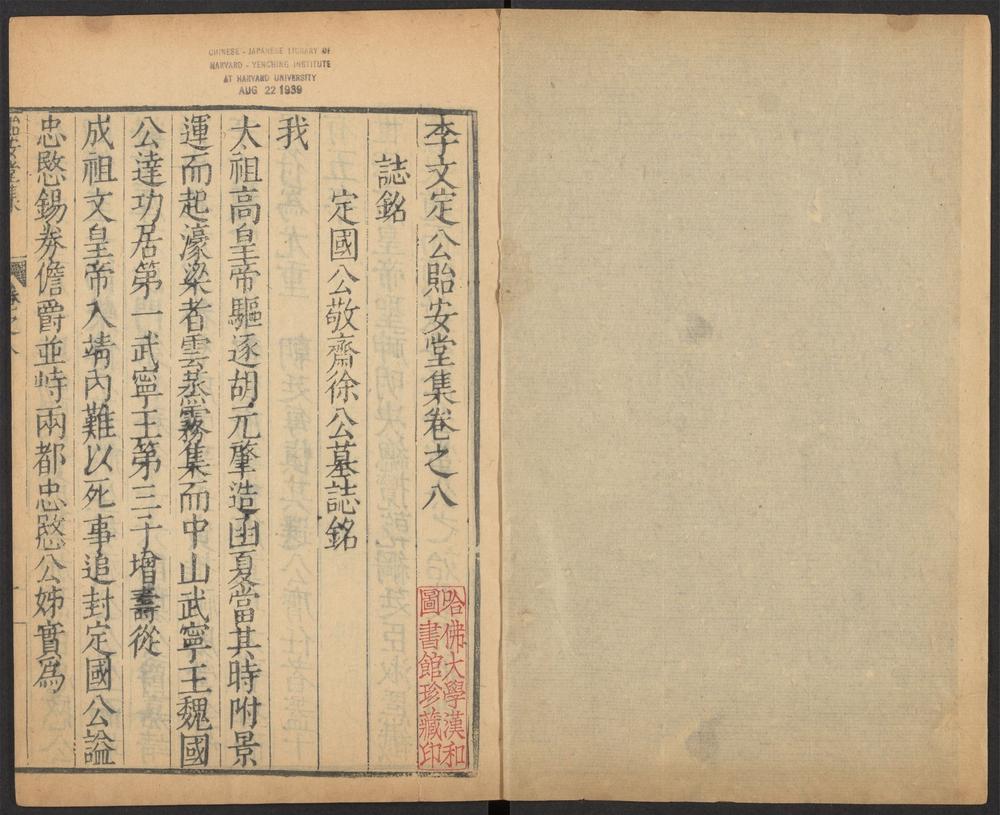 CHINESE - JAPANESE LIBRARY OF
HARVARD - YENCHING INSTITUTE
AT HARVARD UNIVERSITY
AUG 22 1939
李文定公貽安堂集卷之八
誌銘
定國公敬齋徐公墓誌銘
我
太祖高皇帝驅逐胡元肇造函夏當其時附景
運而起濠梁者雲蒸霧集而中山武寧王魏國
公達功居第一武寧王第三子增壽從
成祖文皇帝入靖内難以死事追封定國公謚
忠愍錫券儋爵並峙兩都忠愍公姊實為
哈佛大學漢和
圖書館珍藏印